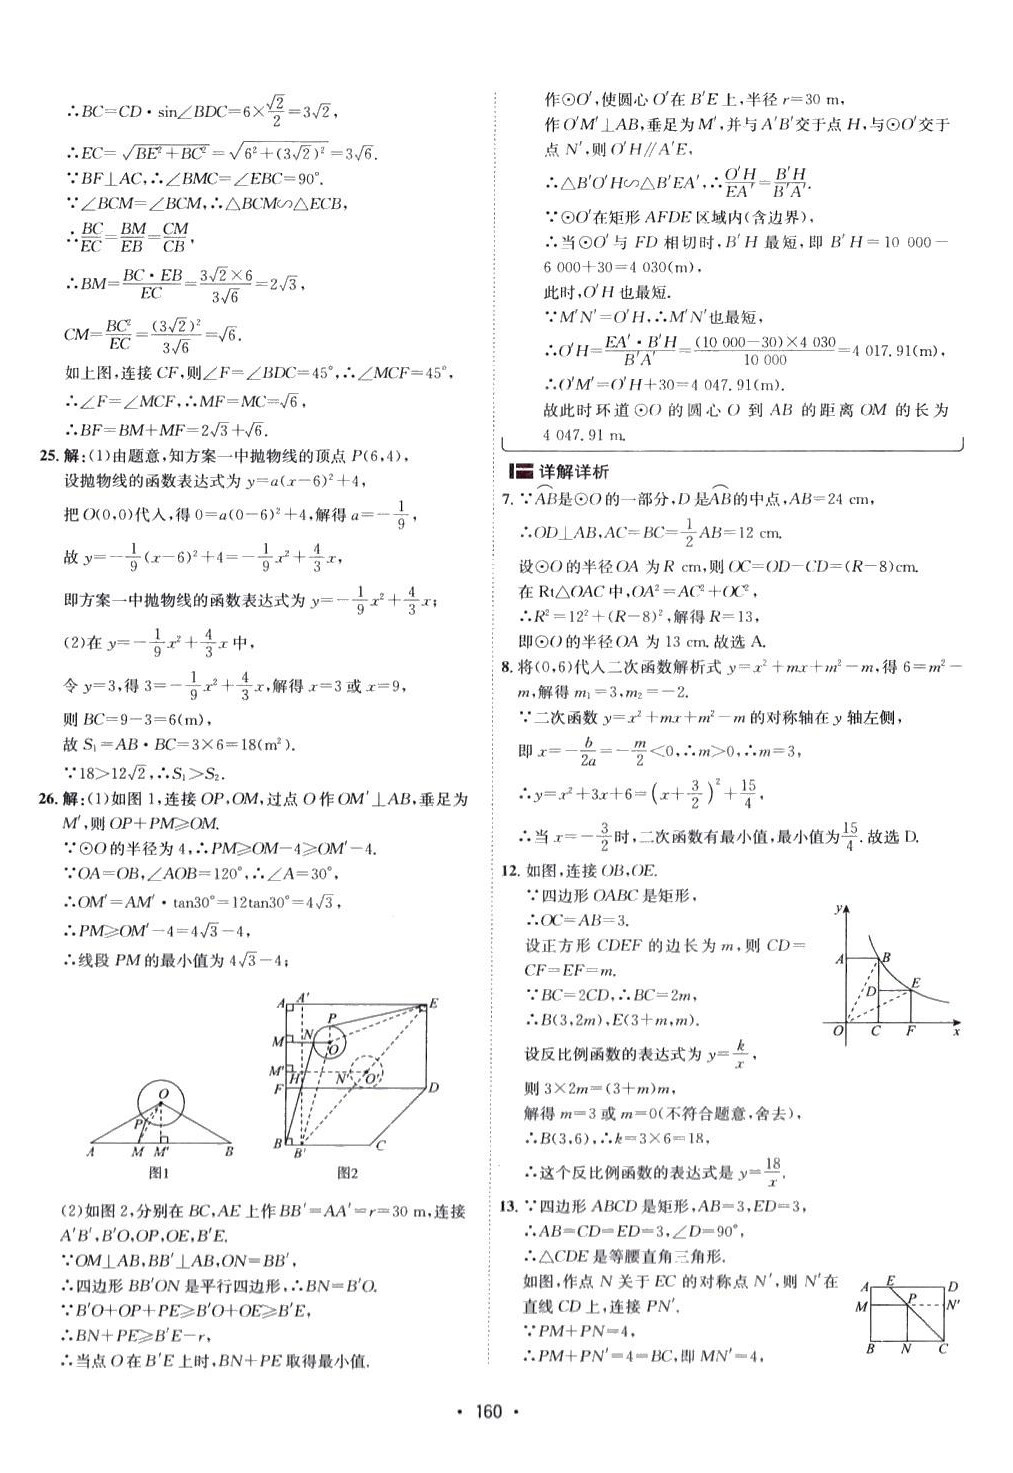 ∴BC=CD·sin∠BDC=6×√2/2=3√2,
∴EC=√(BE²+BC²)=√(6²+(3√2)²)=3√6.
∵BF⊥AC,∴∠BMC=∠EBC=90°.
∵∠BCM=∠BCM,∴△BCM∽△ECB,
∴BC/EC=BM/EB=CM/CB,
∴BM=BC·EB/EC=3√2×6/3√6=2√3,
CM=BC²/EC=(3√2)²/3√6=√6.
如上图,连接 CF,则∠F=∠BDC=45°,∴∠MCF=45°,
∴∠F=∠MCF,∴MF=MC=√6,
∴BF=BM+MF=2√3+√6.
25.解:(1)由题意,知方案一中抛物线的顶点 P(6,4),
设抛物线的函数表达式为 y=a(x-6)²+4,
把 O(0,0)代入,得 0=a(0-6)²+4,解得 a=-1/9,
故 y=-1/9(x-6)²+4=-1/9x²+4/3x,
即方案一中抛物线的函数表达式为 y=-1/9x²+4/3x;
(2)在 y=-1/9x²+4/3x 中,
令 y=3,得 3=-1/9x²+4/3x,解得 x=3 或 x=9,
则 BC=9-3=6(m),
故 S₁=AB·BC=3×6=18(m²).
∵18>12√2,∴S₁>S₂.
26.解:(1)如图 1,连接 OP,OM,过点 O 作 OM′⊥AB,垂足为
M′,则 OP+PM≥OM.
∵⊙O 的半径为 4,∴PM≥OM-4≥OM′-4.
∵OA=OB,∠AOB=120°,∴∠A=30°,
∴OM′=AM′·tan30°=12tan30°=4√3,
∴PM≥OM′-4=4√3-4,
∴线段 PM 的最小值为 4√3-4;
O
P
A M M′ B
图1
A A′ E
P
M N O
M′ H N′ O′
F D
B B′ C
图2
(2)如图 2,分别在 BC,AE 上作 BB′=AA′=r=30 m,连接
A′B′,B′O,OP,OE,B′E.
∵OM⊥AB,BB′⊥AB,ON=BB′,
∴四边形 BB′ON 是平行四边形,∴BN=B′O.
∵B′O+OP+PE≥B′O+OE≥B′E,
∴BN+PE≥B′E-r,
∴当点 O 在 B′E 上时,BN+PE 取得最小值.
作⊙O′,使圆心 O′在 B′E 上,半径 r=30 m,
作 O′M′⊥AB,垂足为 M′,并与 A′B′交于点 H,与⊙O′交于
点 N′,则 O′H∥A′E,
∴△B′O′H∽△B′EA′,∴O′H/EA′=B′H/B′A′.
∵⊙O′在矩形 AFDE 区域内(含边界),
∴当⊙O′与 FD 相切时,B′H 最短,即 B′H=10 000-
6 000+30=4 030(m),
此时,O′H 也最短.
∵M′N′=O′H,∴M′N′也最短,
∴O′H=EA′·B′H/B′A′=(10 000-30)×4 030/10 000=4 017.91(m),
∴O′M′=O′H+30=4 047.91(m).
故此时环道⊙O 的圆心 O 到 AB 的距离 OM 的长为
4 047.91 m.
详解详析
7. ∵A͡B是⊙O 的一部分,D 是A͡B的中点,AB=24 cm,
∴OD⊥AB,AC=BC=1/2AB=12 cm.
设⊙O 的半径 OA 为 R cm,则 OC=OD-CD=(R-8)cm.
在 Rt△OAC 中,OA²=AC²+OC²,
∴R²=12²+(R-8)²,解得 R=13,
即⊙O 的半径 OA 为 13 cm. 故选 A.
8. 将(0,6)代入二次函数解析式 y=x²+mx+m²-m,得 6=m²-
m,解得 m₁=3,m₂=-2.
∵二次函数 y=x²+mx+m²-m 的对称轴在 y 轴左侧,
即 x=-b/2a=-m/2<0,∴m>0,∴m=3,
∴y=x²+3x+6=(x+3/2)²+15/4,
∴当 x=-3/2时,二次函数有最小值,最小值为15/4.故选 D.
12. 如图,连接 OB,OE.
∵四边形 OABC 是矩形,
∴OC=AB=3.
设正方形 CDEF 的边长为 m,则 CD=
CF=EF=m.
∵BC=2CD,∴BC=2m,
∴B(3,2m),E(3+m,m).
设反比例函数的表达式为 y=k/x,
则 3×2m=(3+m)m,
解得 m=3 或 m=0(不符合题意,舍去),
∴B(3,6),∴k=3×6=18,
∴这个反比例函数的表达式是 y=18/x.
y
A B
D E
O C F x
13. ∵四边形 ABCD 是矩形,AB=3,ED=3,
∴AB=CD=ED=3,∠D=90°,
∴△CDE 是等腰直角三角形.
如图,作点 N 关于 EC 的对称点 N′,则 N′在
直线 CD 上,连接 PN′.
∵PM+PN=4,
∴PM+PN′=4=BC,即 MN′=4,
A E D
M P N′
B N C
· 160 ·